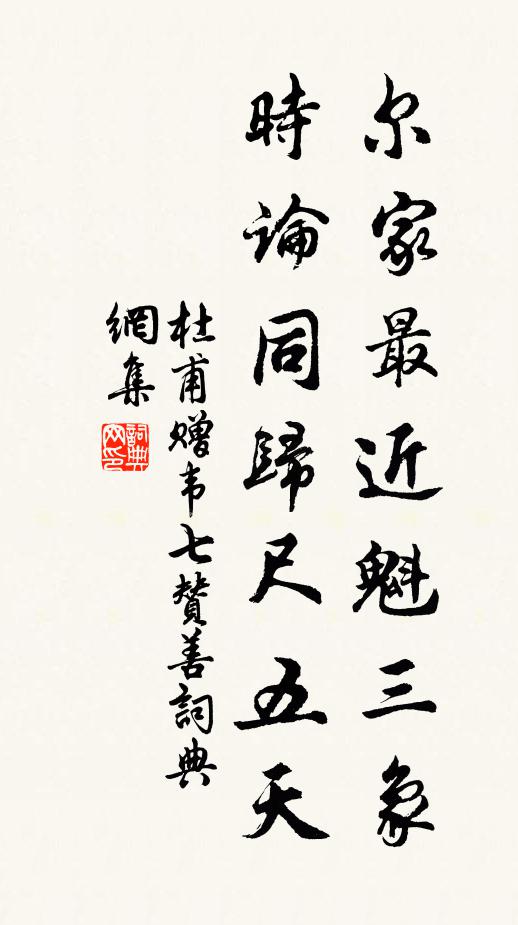 尔家最近魁三象
時論同歸尺五天
杜甫赠韦七賛善詞典
網集
詞典
网印